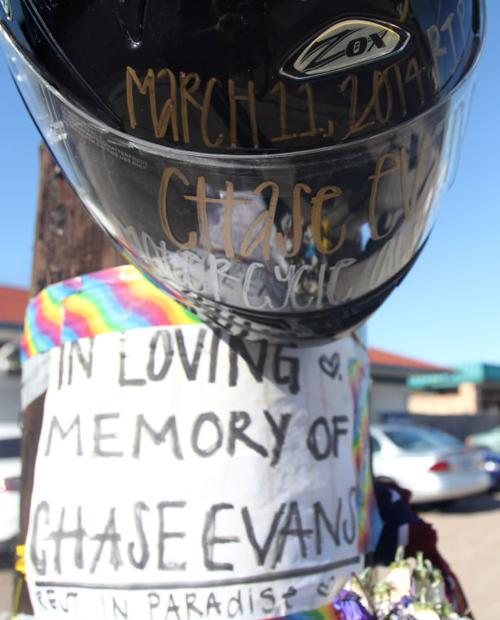 Zox
MarcH 11, 2014 RIP
CHase Ev
CYCLE
IN LOVING
MEMORY OF
CHASE EVANS
REST IN PARAdiSE